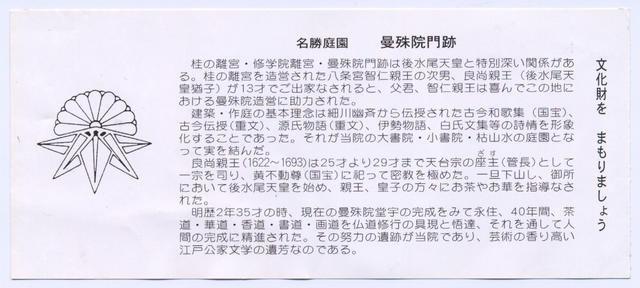 名勝庭園　曼殊院門跡
桂の離宮・修学院離宮・曼殊院門跡は後水尾天皇と特別深い関係があ
る。桂の離宮を造営された八条宮智仁親王の次男、良尚親王（後水尾天
皇猶子）が13才でご出家なされると、父君、智仁親王は喜んでこの地に
おける曼殊院造営に助力された。
建築・作庭の基本理念は細川幽斉から伝授された古今和歌集（国宝）、
古今伝授（重文）、源氏物語（重文）、伊勢物語、白氏文集等の詩情を形象
化することであった。それが当院の大書院・小書院・枯山水の庭園とな
って実を結んだ。
良尚親王(1622〜1693)は25才より29才まで天台宗の座主(管長)として
一宗を司り、黄不動尊(国宝)に祀って密教を極めた。一旦下山し、御所
において後水尾天皇を始め、親王、皇子の方々にお茶やお華を指導なさ
れた。
明暦2年35才の時、現在の曼殊院堂宇の完成をみて永住、40年間、茶
道・華道・香道・書道・画道を仏道修行の具現と悟達、それを通して人
間の完成に精進された。その努力の遺跡が当院であり、芸術の香り高い
江戸公家文学の遺芳なのである。
文化財を　まもりましょう